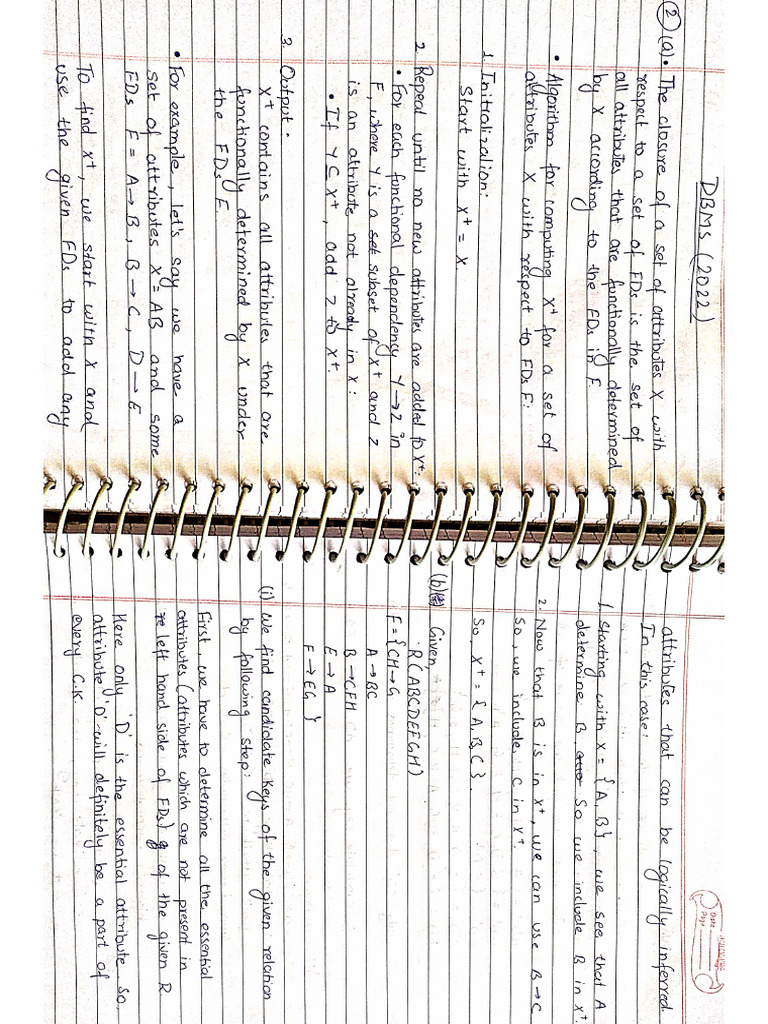 DBMS (2022)
② (a). • The closure of a set of attributes X with
respect to a set of FDs is the set of
all attributes that are functionally determined
by X according to the FDs in F.
• Algorithm for computing X⁺ for a set of
attributes X with respect to FDs F:
1. Initialization:
Start with X⁺ = X.
2. Repeat until no new attributes are added to X⁺:
• For each functional dependency Y → Z in
F, where Y is a subset of X⁺ and Z
is an attribute not already in X:
• If Y ⊆ X⁺, add Z to X⁺.
3. Output.
X⁺ contains all attributes that are
functionally determined by X under
the FDs F.
• For example, let's say we have a
set of attributes X = AB and some
FDs F = A → B, B → C, D → E
To find X⁺, we start with X and
use the given FDs to add any
attributes that can be logically inferred
In this case:
1. Starting with X = {A, B}, we see that A
determine B So we include B in X⁺.
2. Now that B is in X⁺, we can use B → C
so, we include C in X⁺.
So, X⁺ = {A, B, C}.
(b) Given
R(ABCDEFGH)
F = {CH → G
A → BC
B → CFH
E → A
F → EG}
(i) We find candidate keys of the given relation
by following step:
First, we have to determine all the essential
attributes (attributes which are not present in
re left hand side of FDs) of the given R
Here only 'D' is the essential attribute. So,
attribute 'D' will definitely be a part of
every C.K.
Date
Page